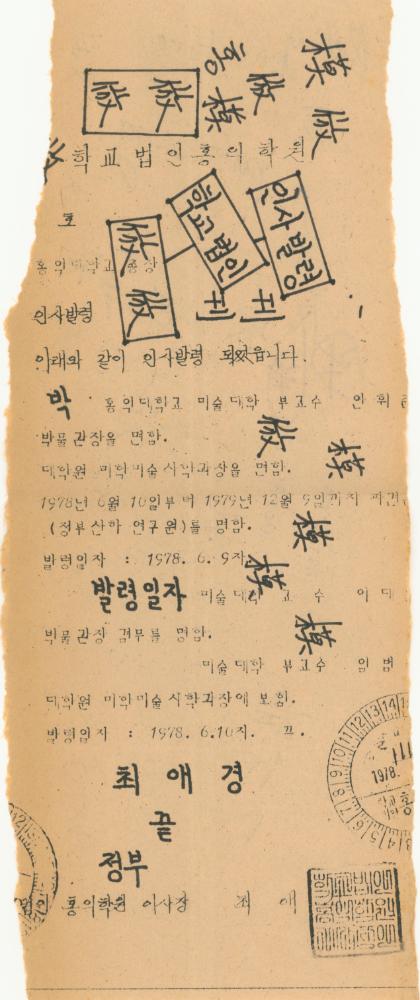 模 倣
倣
홍 模
倣 倣
倣
학교법인홍익학원
인사발령
학교법인
倣 倣
刊 刊
호
홍익대학교 총장
인사발령
아래와 같이 인사발령 되었읍니다.
박 홍익대학교 미술대학 부교수 안휘
박물관장을 면함.
대학원 미학미술사학과장을 면함.
倣 模
1978년 6월 10일부터 1979년 12월 9일까지 파견
(정부산하 연구원)를 명함.
模
발령일자 : 1978. 6. 9자
模
발령일자 미술대학 교수 이대
模
박물관장 겸무를 명함.
미술대학 부교수 임범
대학원 미학미술사학과장에 보함.
발령일자 : 1978. 6.10자. 끝.
1978.
최애경
끝
정부
홍익학원 이사장 최애